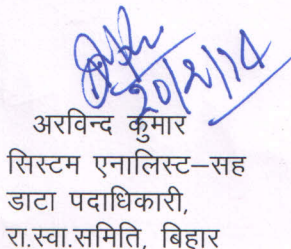 20/2/14
अरविन्द कुमार
सिस्टम एनालिस्ट–सह
डाटा पदाधिकारी,
रा.स्वा.समिति, बिहार